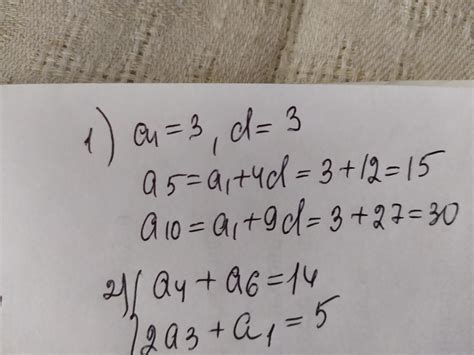 1) a₁ = 3, d = 3
a5 = a₁ + 4d = 3 + 12 = 15
a10 = a₁ + 9d = 3 + 27 = 30
2) { a4 + a6 = 14
2a3 + a₁ = 5